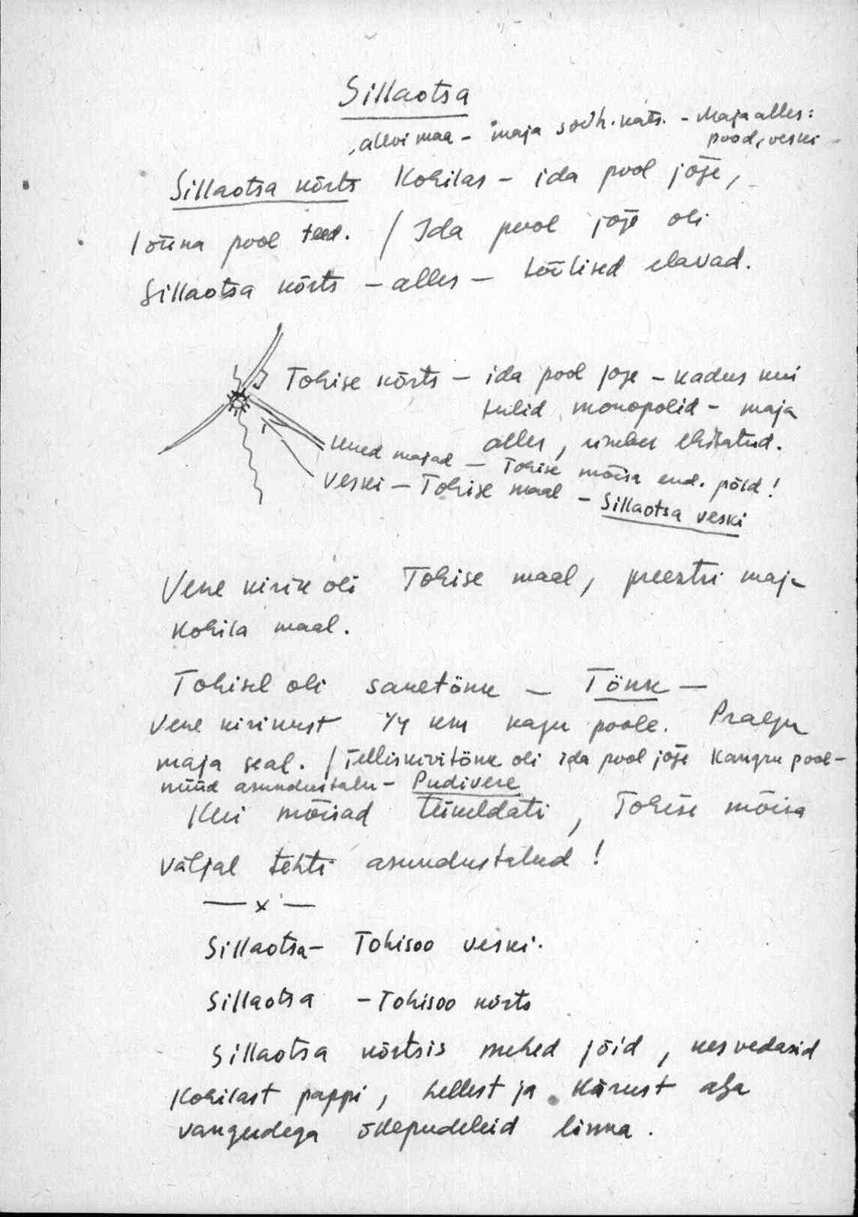 Sillaotsa
alevi maa - maja sovh. - Maja alles:
pood, veski
Sillaotsa kõrts Kohilas - ida pool jõge,
lõuna pool teed. / Ida pool jõge oli
Sillaotsa kõrts - alles - töölised elavad.
Tohise kõrts - ida pool jõge - kadus kui
tulid monopolid - maja
alles, ümber ehitatud.
Uued majad - Tohise mõisa end. põld!
Veski - Tohise maal - Sillaotsa veski
Vene kirik oli Tohise maal, preestri maja
Kohila maal.
Tohisel oli sauetõnk - Tõnk -
Vene kirikust 1/4 km kagu poole. Praegu
maja seal. / Telliskivitõnk oli ida pool jõge Kangru pool -
nüüd asundustalu - Pudivere
Kui mõisad tükeldati, Tohise mõisa
väljal tehti asundustalud!
— x —
Sillaotsa - Tohisoo veski.
Sillaotsa - Tohisoo kõrts
Sillaotsa kõrtsis mehed jõid, kes vedasid
Kohilast pappi, Lellest ja Kärust aga
vangudega õllepudeleid linna.